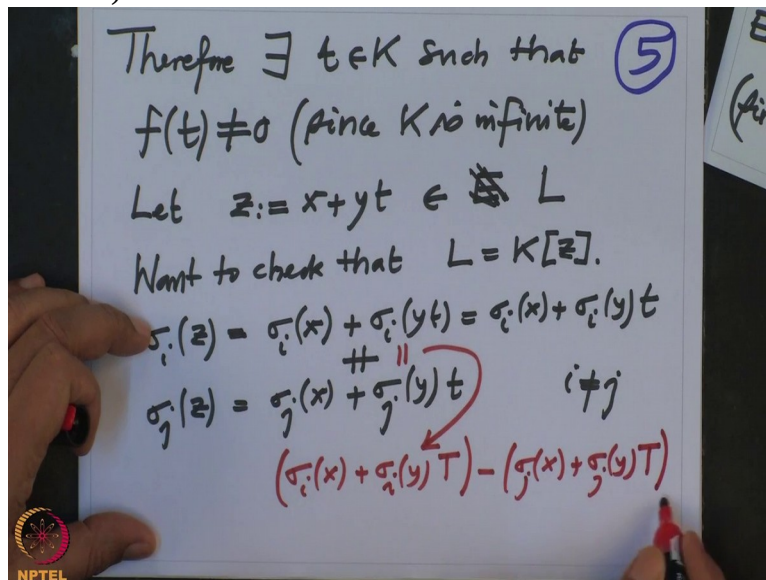 Therefore ∃ t ∈ K such that
⑤
f(t) ≠ 0 (since K is infinite)
Let z := x + yt ∈ L
Want to check that L = K[z].
σᵢ(z) = σᵢ(x) + σᵢ(yt) = σᵢ(x) + σᵢ(y) t
≠ ||
σⱼ(z) = σⱼ(x) + σⱼ(y) t i ≠ j
(σᵢ(x) + σᵢ(y) T) − (σⱼ(x) + σⱼ(y) T)
NPTEL